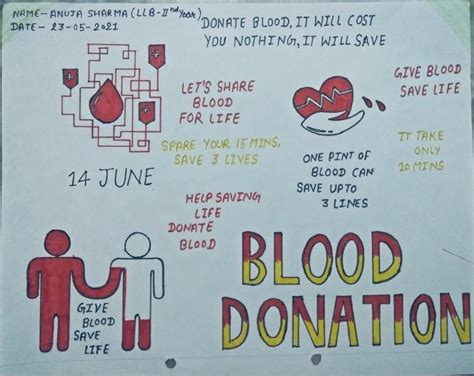 NAME- ANUJA SHARMA (LLB-IInd Year)
DATE- 23-05-2021
DONATE BLOOD, IT WILL COST
YOU NOTHING, IT WILL SAVE
LET'S SHARE
BLOOD
FOR LIFE
GIVE BLOOD
SAVE LIFE
SPARE YOUR 15 MINS,
SAVE 3 LIVES
IT TAKE
ONLY
10 MINS
14 JUNE
ONE PINT OF
BLOOD CAN
SAVE UPTO
3 LINES
HELP SAVING
LIFE
DONATE
BLOOD
GIVE
BLOOD
SAVE
LIFE
BLOOD
DONATION